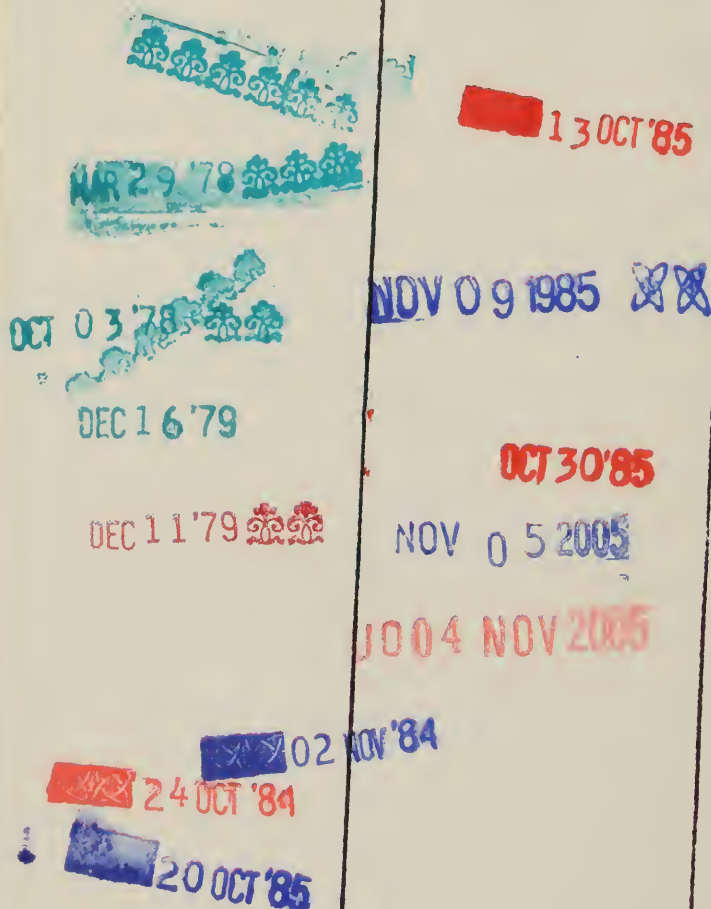 MAR 29 '78
OCT 03 '78
DEC 16 '79
DEC 11 '79
02 NOV '84
24 OCT '84
20 OCT '85
13 OCT '85
NOV 09 1985
OCT 30 '85
NOV 05 2005
JO04 NOV 2005